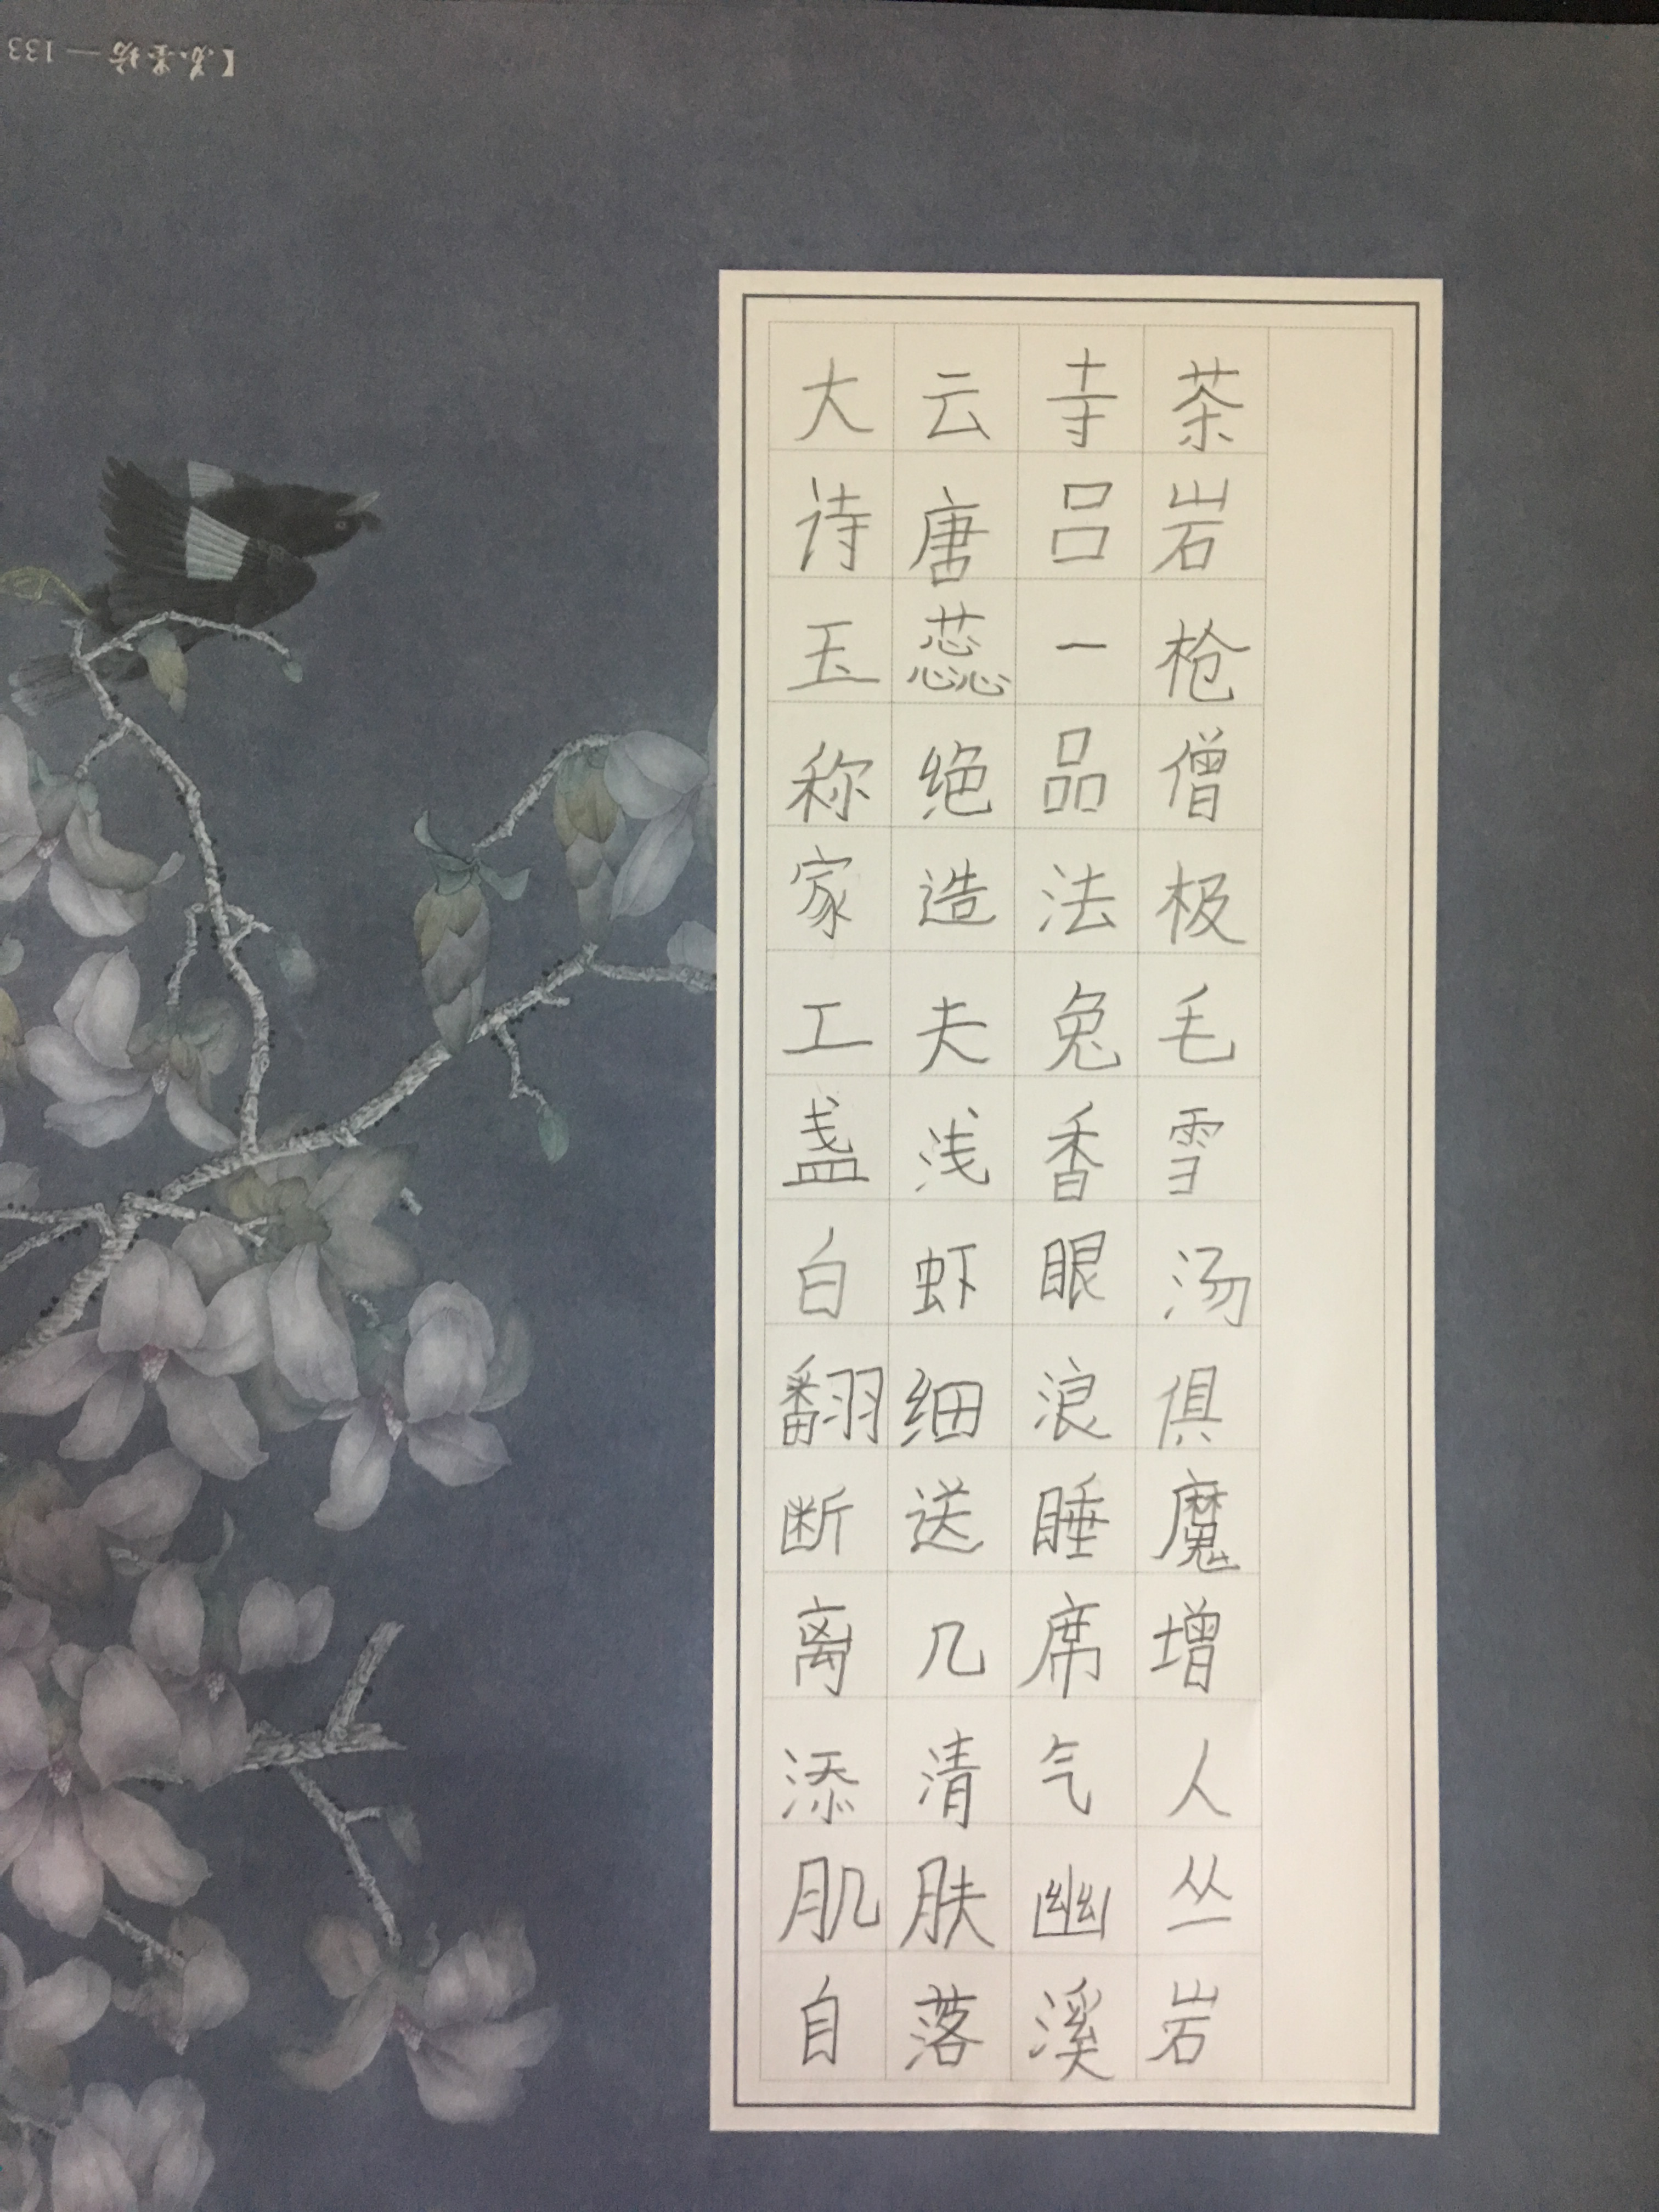 大云寺茶
诗唐吕岩
玉蕊一枪
称绝品僧
家造法极
工夫兔毛
盏浅香雪
白虾眼汤
翻细浪俱
断送睡魔
离几席增
添清气人
肌肤幽丛
自落溪岩
133